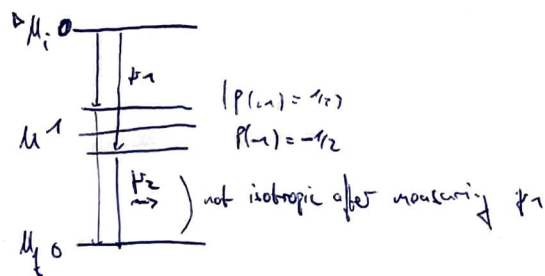 μi 0
γ1
(P(+1) = 1/2)
μ 1
P(-1) = -1/2
γ2
) not isotropic after measuring γ1
μf 0